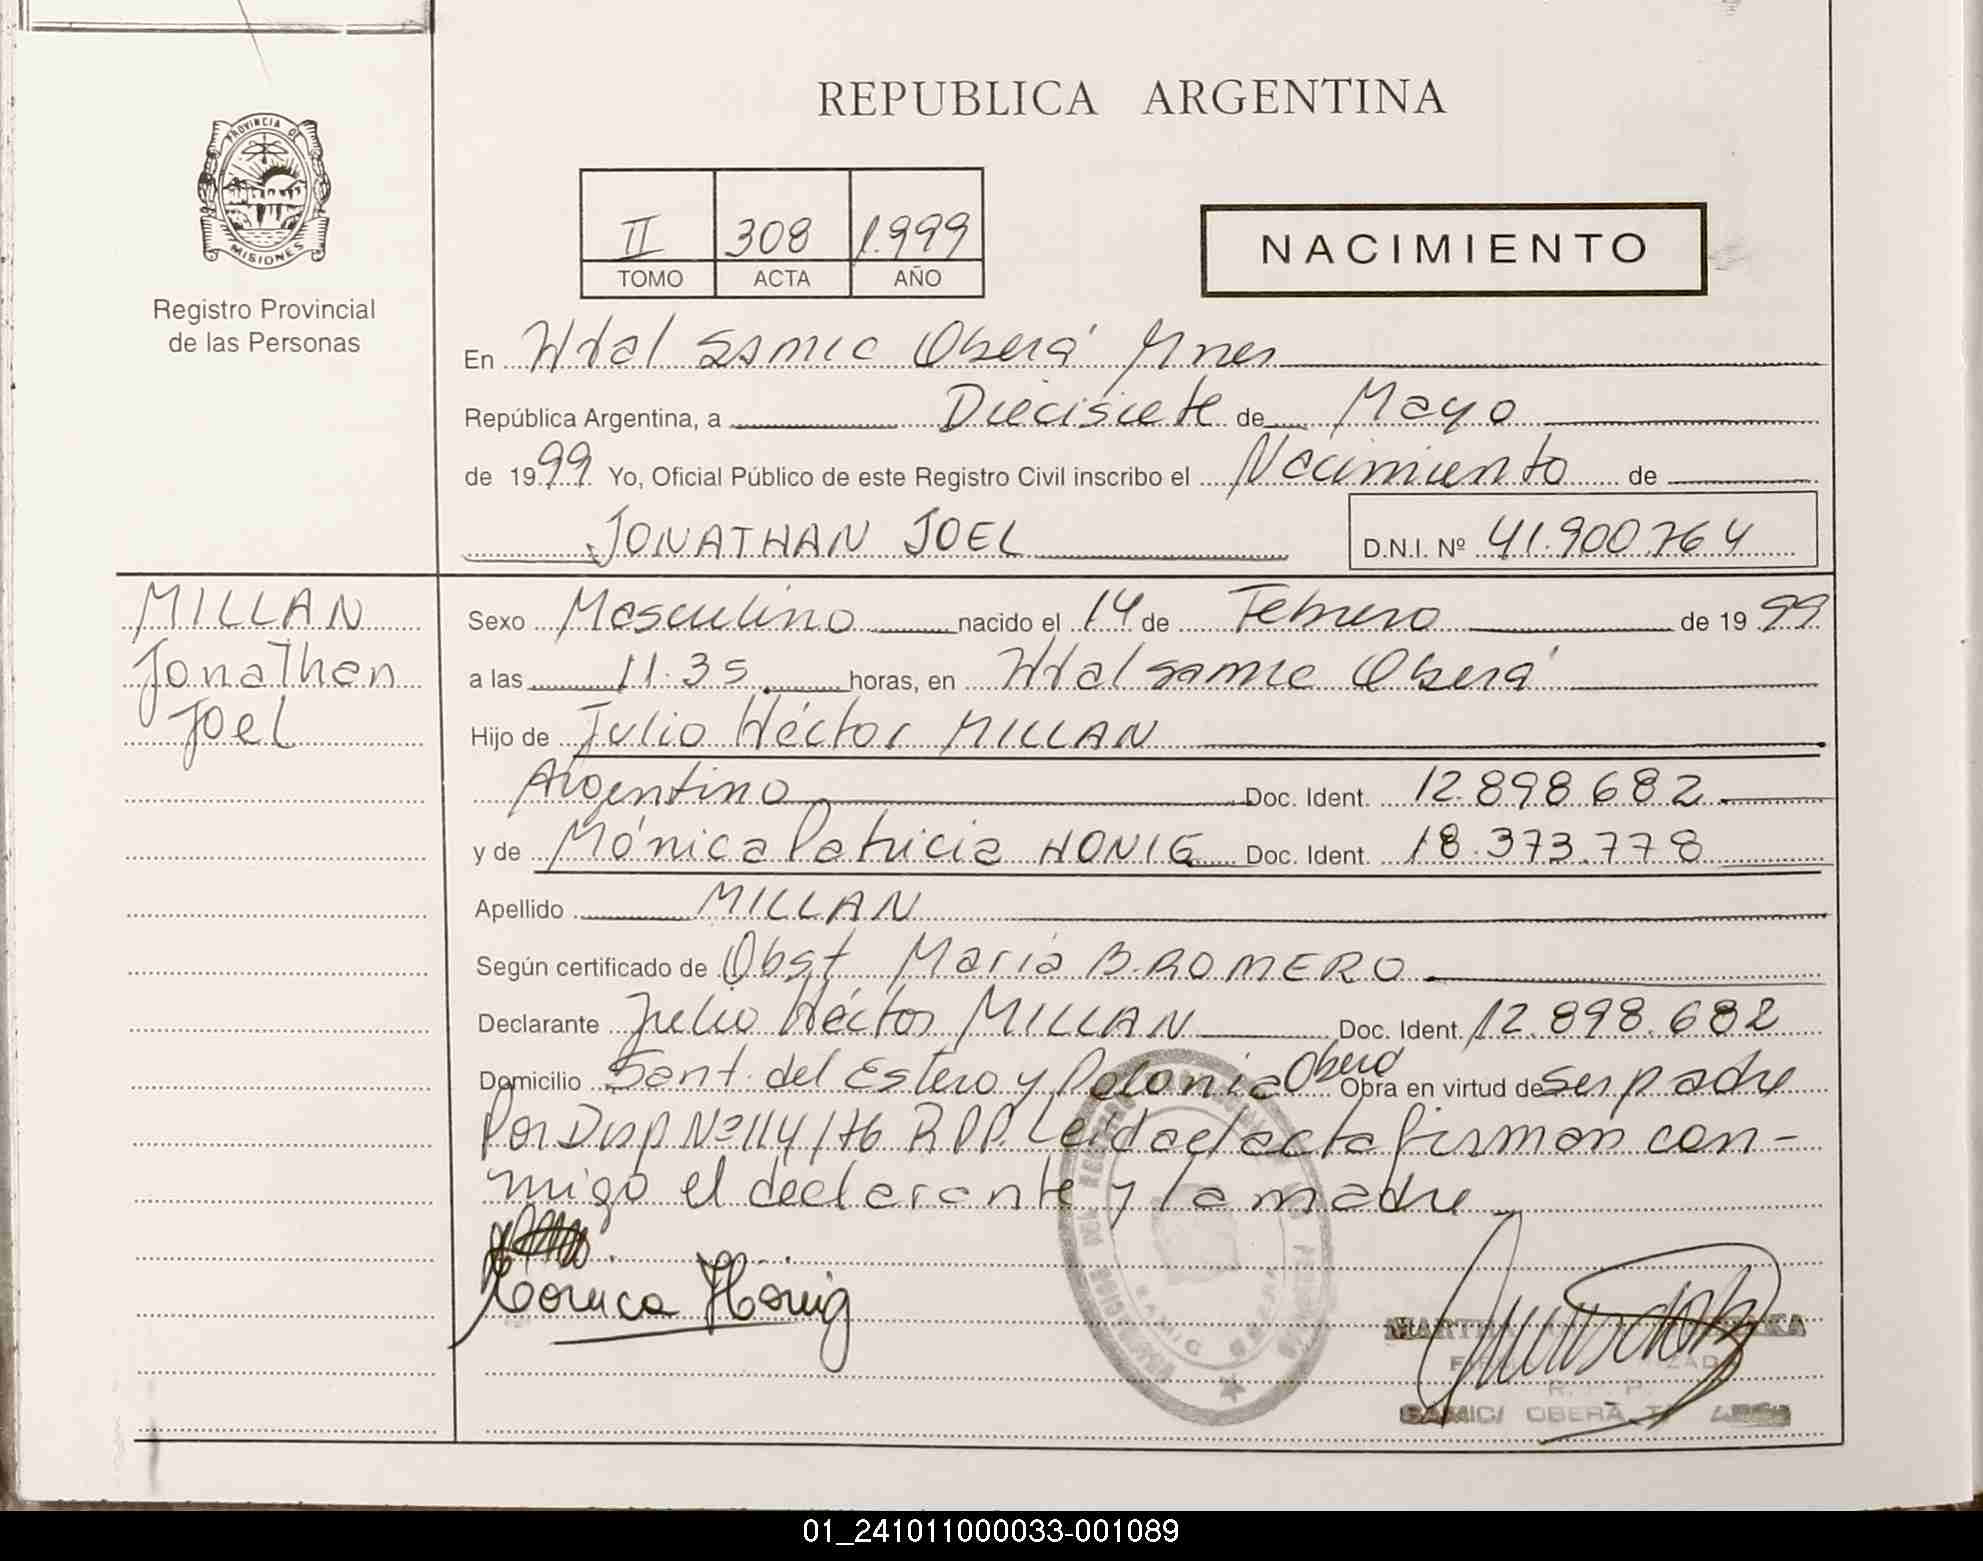 REPUBLICA ARGENTINA
PROVINCIA DE
MISIONES
Registro Provincial
de las Personas
II 308 1.999
TOMO ACTA AÑO
NACIMIENTO
En Htal SAMIC Oberá Mnes
República Argentina, a Diecisiete de Mayo
de 1999 Yo, Oficial Público de este Registro Civil inscribo el Nacimiento de
JONATHAN JOEL D.N.I. Nº 41.900.764
MILLAN
Jonathan
Joel
Sexo Masculino nacido el 14 de Febrero de 1999
a las 11.35 horas, en Htal SAMIC Oberá
Hijo de Julio Héctor MILLAN
Argentino Doc. Ident. 12.898.682
y de Mónica Patricia HONIG Doc. Ident. 18.373.778
Apellido MILLAN
Según certificado de Obst María B. ROMERO
Declarante Julio Héctor MILLAN Doc. Ident. 12.898.682
Domicilio Sant. del Estero y Polonia Oberá Obra en virtud de ser padre
Por Disp Nº 114/76 R.P.P. Leída el acta firman con-
migo el declarante y la madre
Monica Honig
MARTHA
R. P. P.
SAMIC OBERÁ
01_241011000033-001089